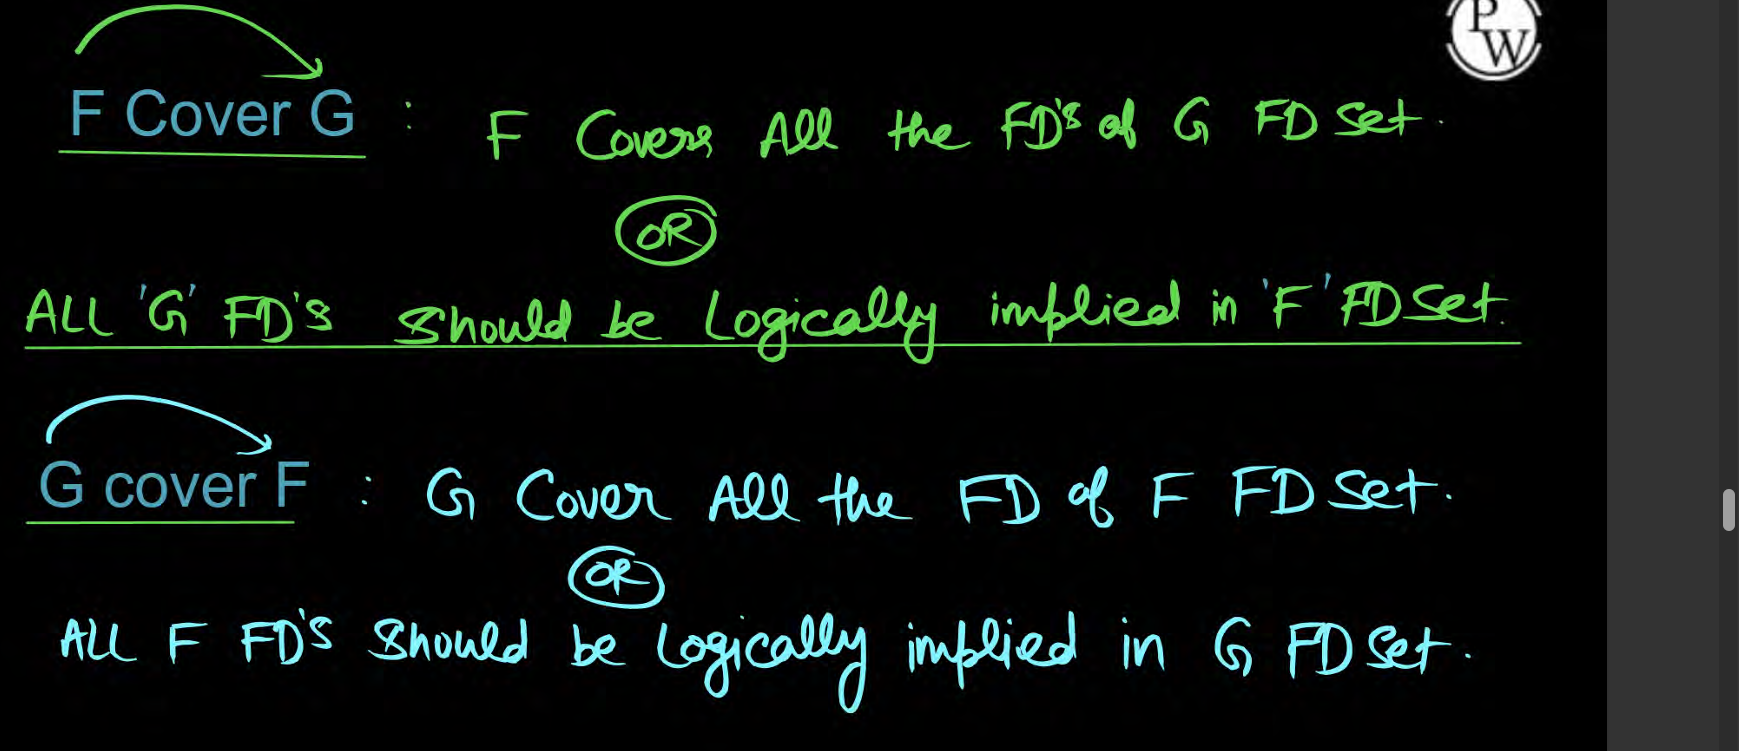 PW
F Cover G : F Covers All the FD's of G FD Set.
OR
ALL 'G' FD's should be Logically implied in 'F' FD Set.
G cover F : G Cover All the FD of F FD Set.
OR
ALL F FD's should be Logically implied in G FD Set.